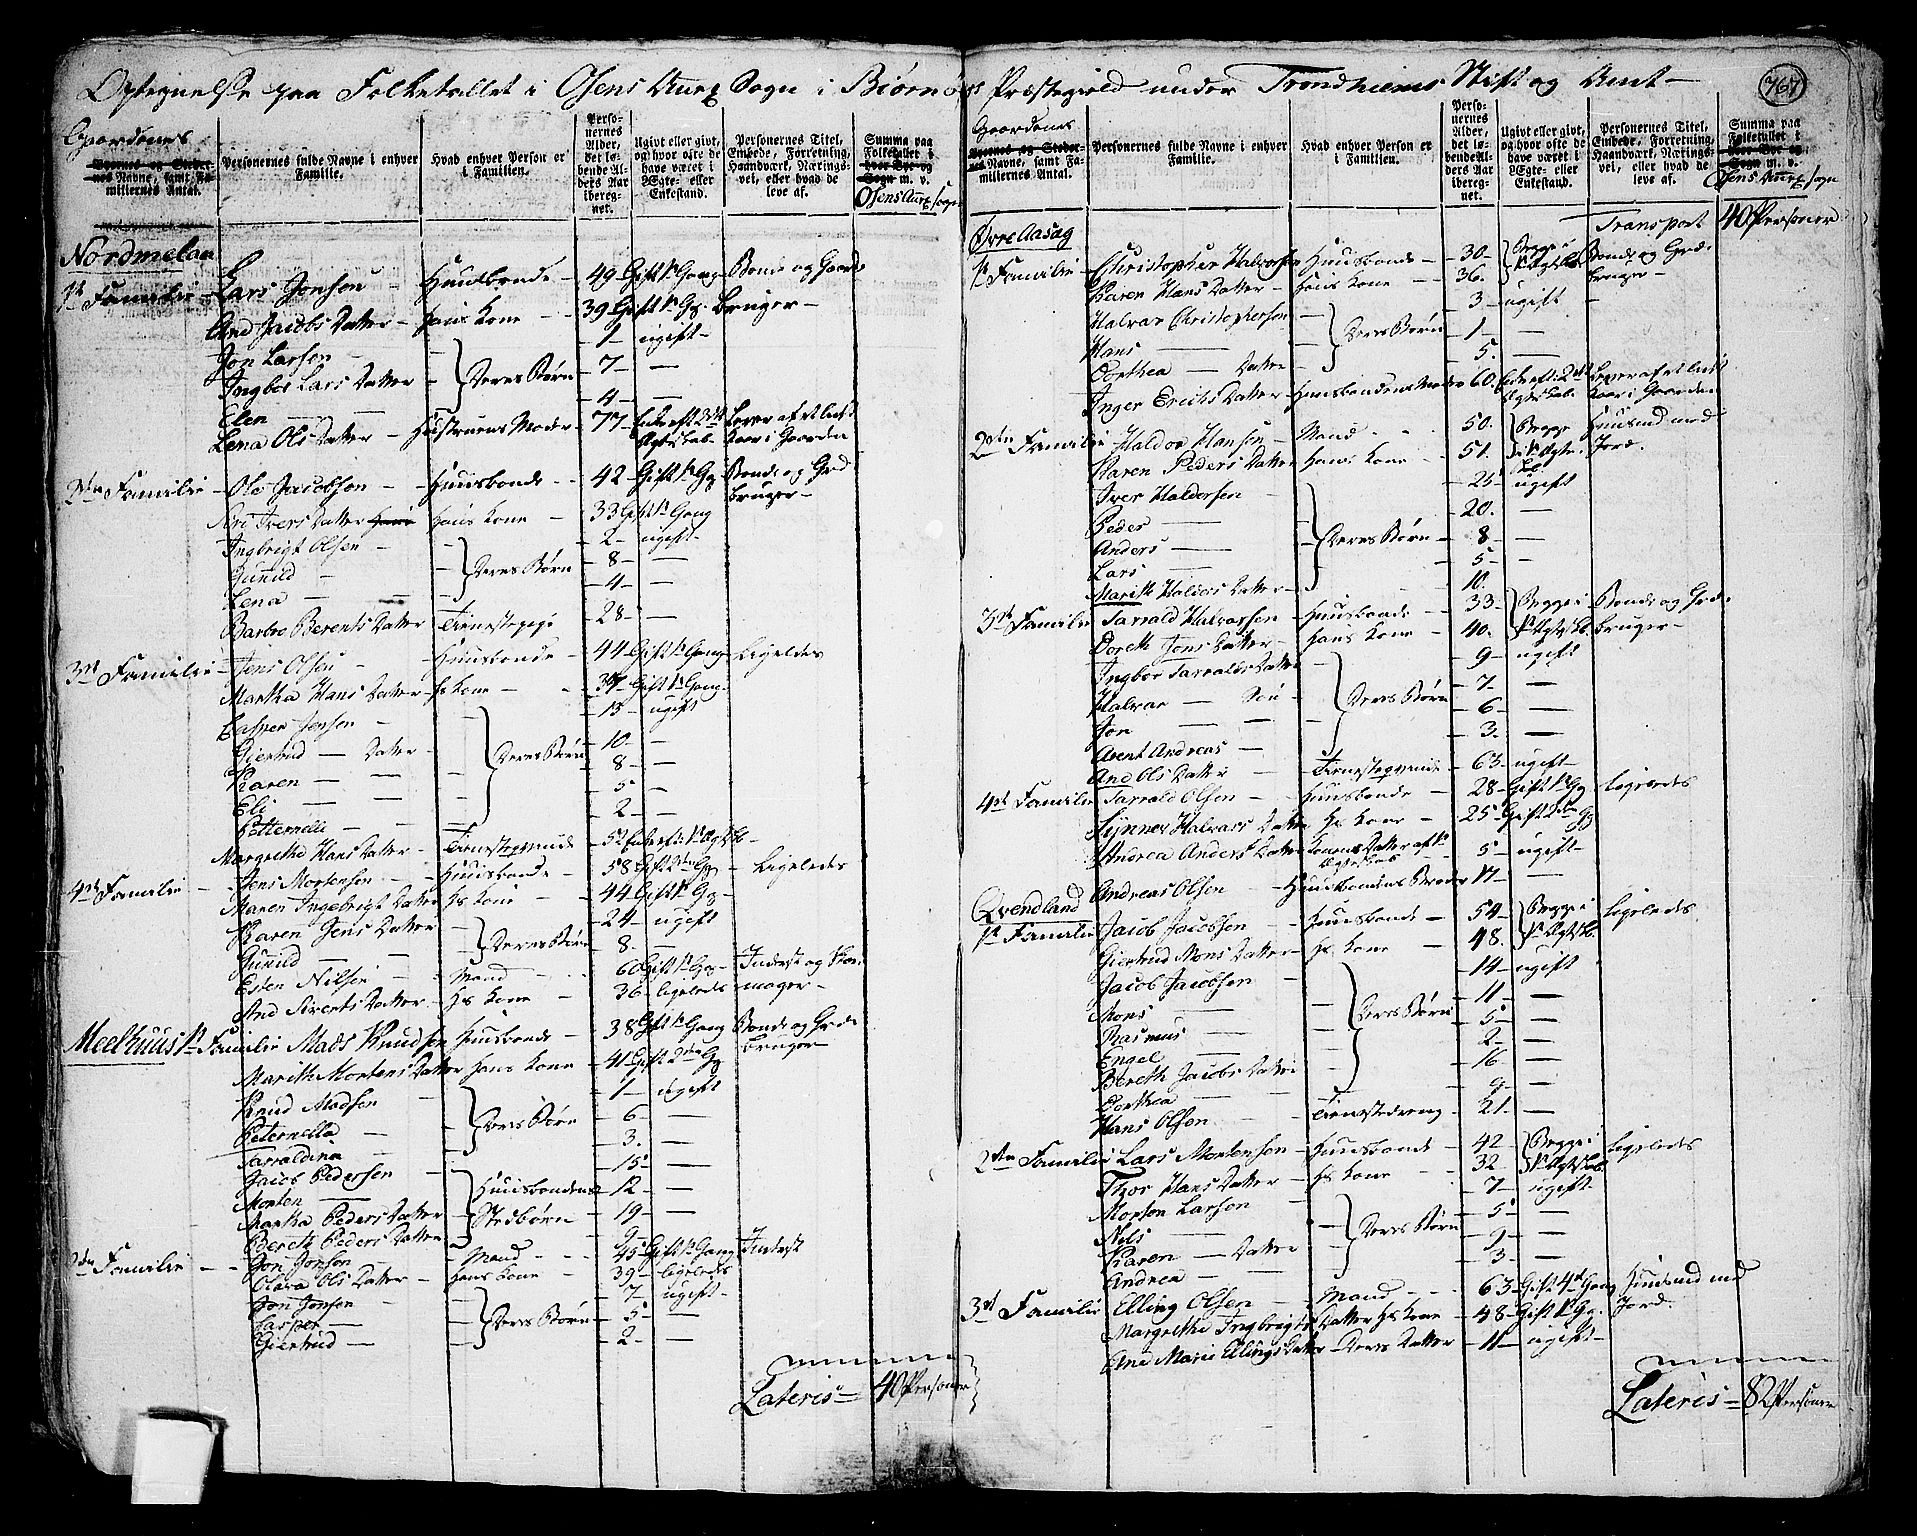 Optegnelse paa Folketallet i Osens Anex Sogn i Biørnøes Præstegield under Trondhiems Stift og Amt
767
Gaardenes
Byernes og Stedernes Navne, samt Familiernes Antal.
Personernes fulde Navne i enhver Familie.
Hvad enhver Person er i Familien.
Personernes Alder, det løbende Alders Aar iberegnet.
Ugivt eller givt, og hvor ofte de have været i Ægte- eller Enkestand.
Personernes Titel, Embede, Forretning, Haandværk, Næringsvei, eller hvad de leve af.
Summa paa Folketallet i hver By og Sogn m. v.
Osens Anex sogn
Nordmelan
1st Familie Lars Jonsen Huusbonde 49 Gift 1st Gang Bonde og Gaard
And Jacobs Datter Hans Kone 39 Gift 1st Gg. bruger
Jon Larsen 1 ugift
Ingbor Lars Datter Deres Børn 7
Elen 4
Lena Ols Datter Hustruens Moder 77
2den Familie Ole Jacobsen Huusbonde 42 Gift 1st Gg Bonde og Grd bruger
Siri Ivers Datter Hans Kone 33 Gift 1st Gang
Ingbrigt Olsen 2 ugift
Gunild Deres Børn 8
Lena 4
Barbro Berents Datter Tienestepige 28
3die Familie Jens Olsen Huusbonde 44 Gift 1st Gang Ligeledes
Martha Hans Datter Hs Kone 37 Gift 1st Gang
Casper Jensen 13 ugift
Giertrud Datter Deres Børn 10
Karen 8
Eli 5
Petternelle 2
Margrethe Hans Datter Tienesteqvinde
4de Familie Jens Mortensen Huusbonde 58 Gift 2den Gg Ligeledes
Maren Ingebrigt Datter Hs Kone 44 Gift 1st Gg
Karen Jens Datter 24 ugift
Gunild Deres Børn 8
Esten Nilsen Mand 60 Gift 1st Gg Inderst og Skomager
And Siverts Datter Hs Kone 36 ligeleds
Meelhuus 1st Familie Mads Knudsen Huusbonde 38 Gift 1st Gang Bonde og Grd bruger
Marith Mortens Datter Hans Kone 41 Gift 2den Gg
Knud Madsen 1 ugift
Peternella Deres Børn 6
Tarraldina 3.
Jacob Pedersen 15
Morten Huusbondens 12
Martha Peders Datter Stedbørn 19
Bereth Peders Datter 9
2den Familie Jon Jonsen Mand 45 Gift 1st Gang Inderst
Olava Ols Datter Hans Kone 39 ligeledes
Jon Jonsen 7 ugift
Casper Deres Børn 5
Giertrud 2
Lateris 40 Personer
Gaardenes
Byernes og Stedernes Navne, samt Familiernes Antal.
Personernes fulde Navne i enhver Familie.
Hvad enhver Person er i Familien.
Personernes Alder, det løbende Alders Aar iberegnet.
Ugivt eller givt, og hvor ofte de have været i Ægte- eller Enkestand.
Personernes Titel, Embede, Forretning, Haandværk, Næringsvei, eller hvad de leve af.
Summa paa Folketallet i hver By og Sogn m. v.
Osens Anex sogn
Transport 40 Personer
Øvre Aasag
1st Familie Christopher Halvorsen Huusbonde 30 Begge i 1st Ægtsk. Bonde og Grd. bruger
Karen Hans Datter Hans Kone 36.
Halvar Christophersen 3 ugift
Hans Deres Børn 1
Dorthea Datter 5.
Inger Erichs Datter Huusbondens Moder 60.
2den Familie Haldor Hansen Mand 50. Begge i 1st Ægte Huusmd med Jord.
Karen Peders Datter Hans Kone 51.
Iver Haldorsen 25 ugift
Peder 20.
Anders Deres Børn 8
Lars 5
Marith Haldors Datter 10.
3die Familie Tarrald Halvorsen Huusbonde 33 Begge i 1st Ægtsk. Bonde og Grd. bruger
Doreth Jens Datter Hans Kone 40.
Ingbor Tarralds Datter 9 ugift
Halvar Søn Deres Børn 7
Jon 6
Arent Andreas 3.
And Ols Datter Tienesteqvinde 63 ugift
4de Familie Tarrald Olsen Huusbonde 28 Gift 1st Gg Ligeledes
Synnev Halvars Datter Hs Kone 25 Gift 2den Gg
Andrea Anders Datter Konens Datter af 1st Ægteskab 5 ugift
Andreas Olsen Huusbondens Broder 17
Qvendland
1st Familie Jacob Jacobsen Huusbonde 54 Begge i 1st Ægtsk. Ligeledes
Giertrud Mons Datter Hs Kone 48.
Jacob Jacobsen 14 ugift
Mons 11
Rasmus Deres Børn 5
Engel 2
Bereth Jacobs Datter 16
Dorthea 9
Hans Olsen Tienestedreng 21.
2den Familie Lars Mortensen Huusbonde 42 Begge i 1st Ægtskab Ligeledes
Thor Hans Datter Hs Kone 32
Morten Larsen 7 ugift
Nils Deres Børn 5
Karen Datter 9
Andrea 3
3die Familie Elling Olsen Mand 63 Gift 4de Gang Huusmd med Jord.
Margrethe Ingbrigts Datter Hs Kone 48 Gift 1st Gg.
Ane Marie Ellings Datter Deres Datter 11 ugift
Lateris 82 Personer